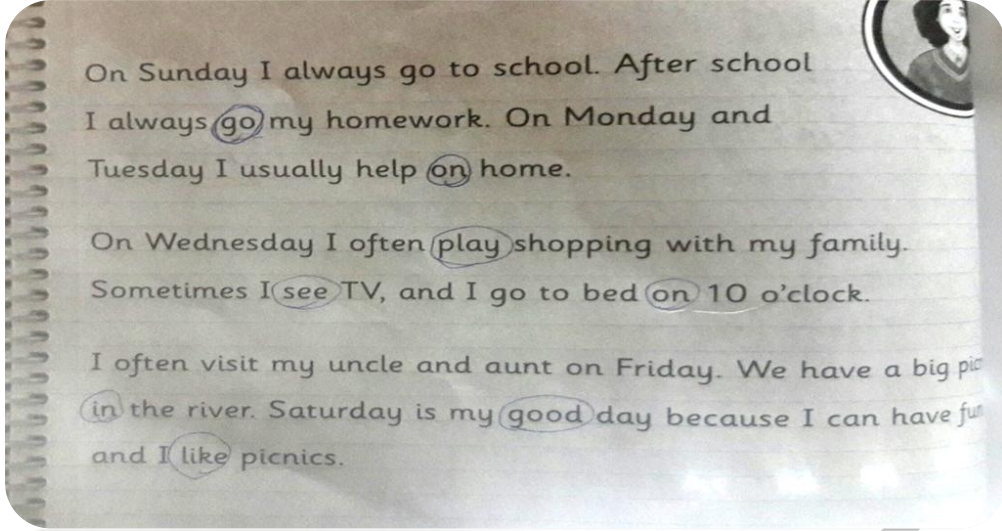 On Sunday I always go to school. After school
I always go my homework. On Monday and
Tuesday I usually help on home.
On Wednesday I often play shopping with my family.
Sometimes I see TV, and I go to bed on 10 o'clock.
I often visit my uncle and aunt on Friday. We have a big pic
in the river. Saturday is my good day because I can have fun
and I like picnics.